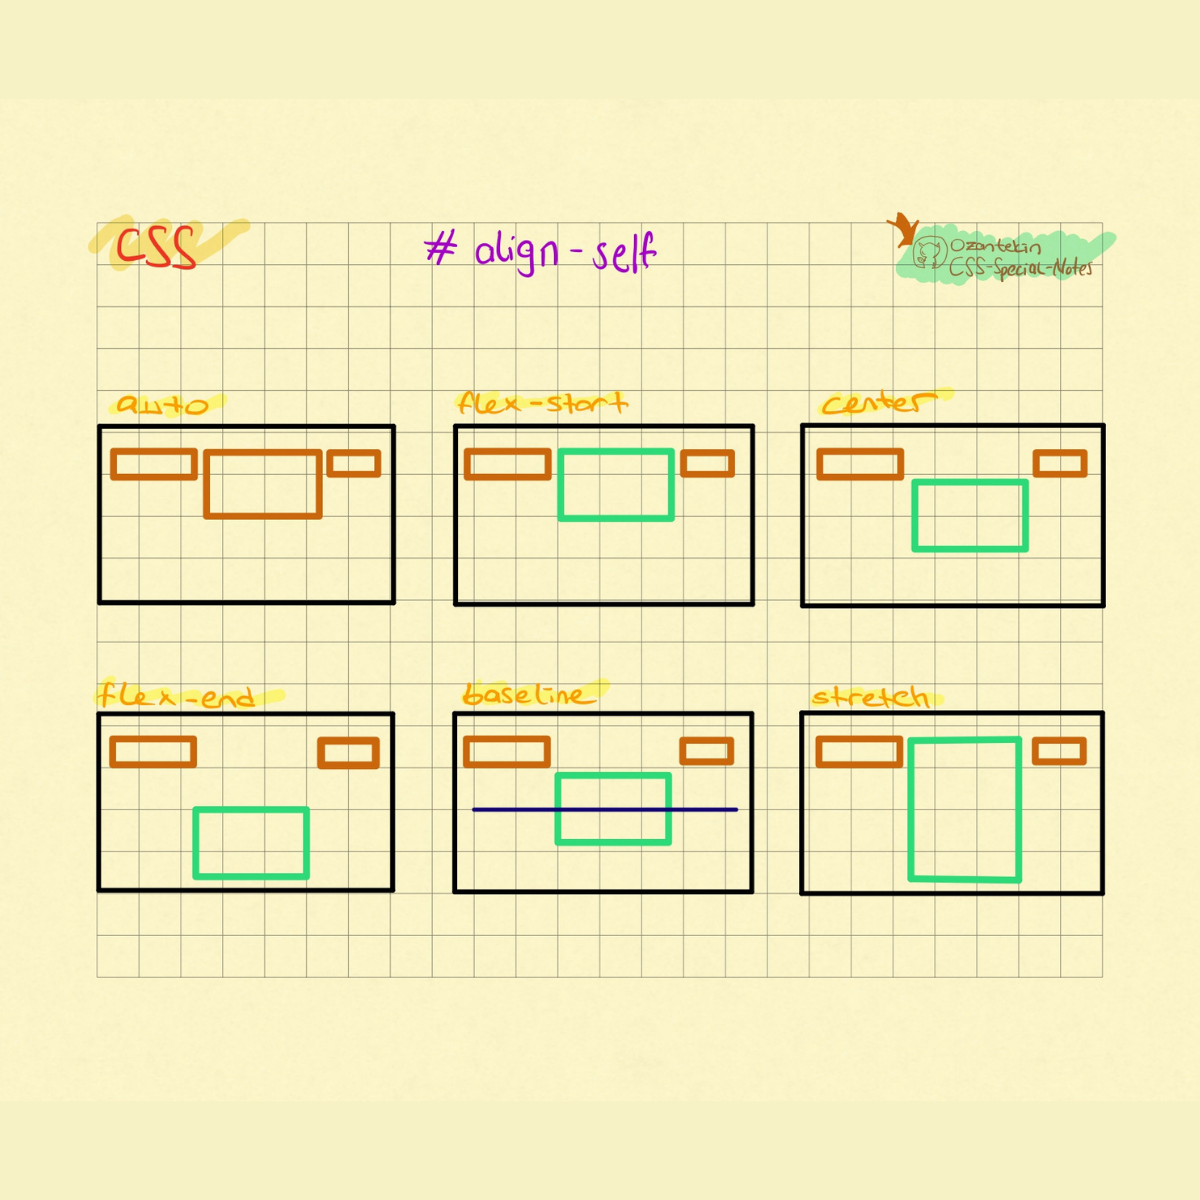 CSS
# align-self
Ozantekin
CSS-Special-Notes
auto
flex-start
center
flex-end
baseline
stretch